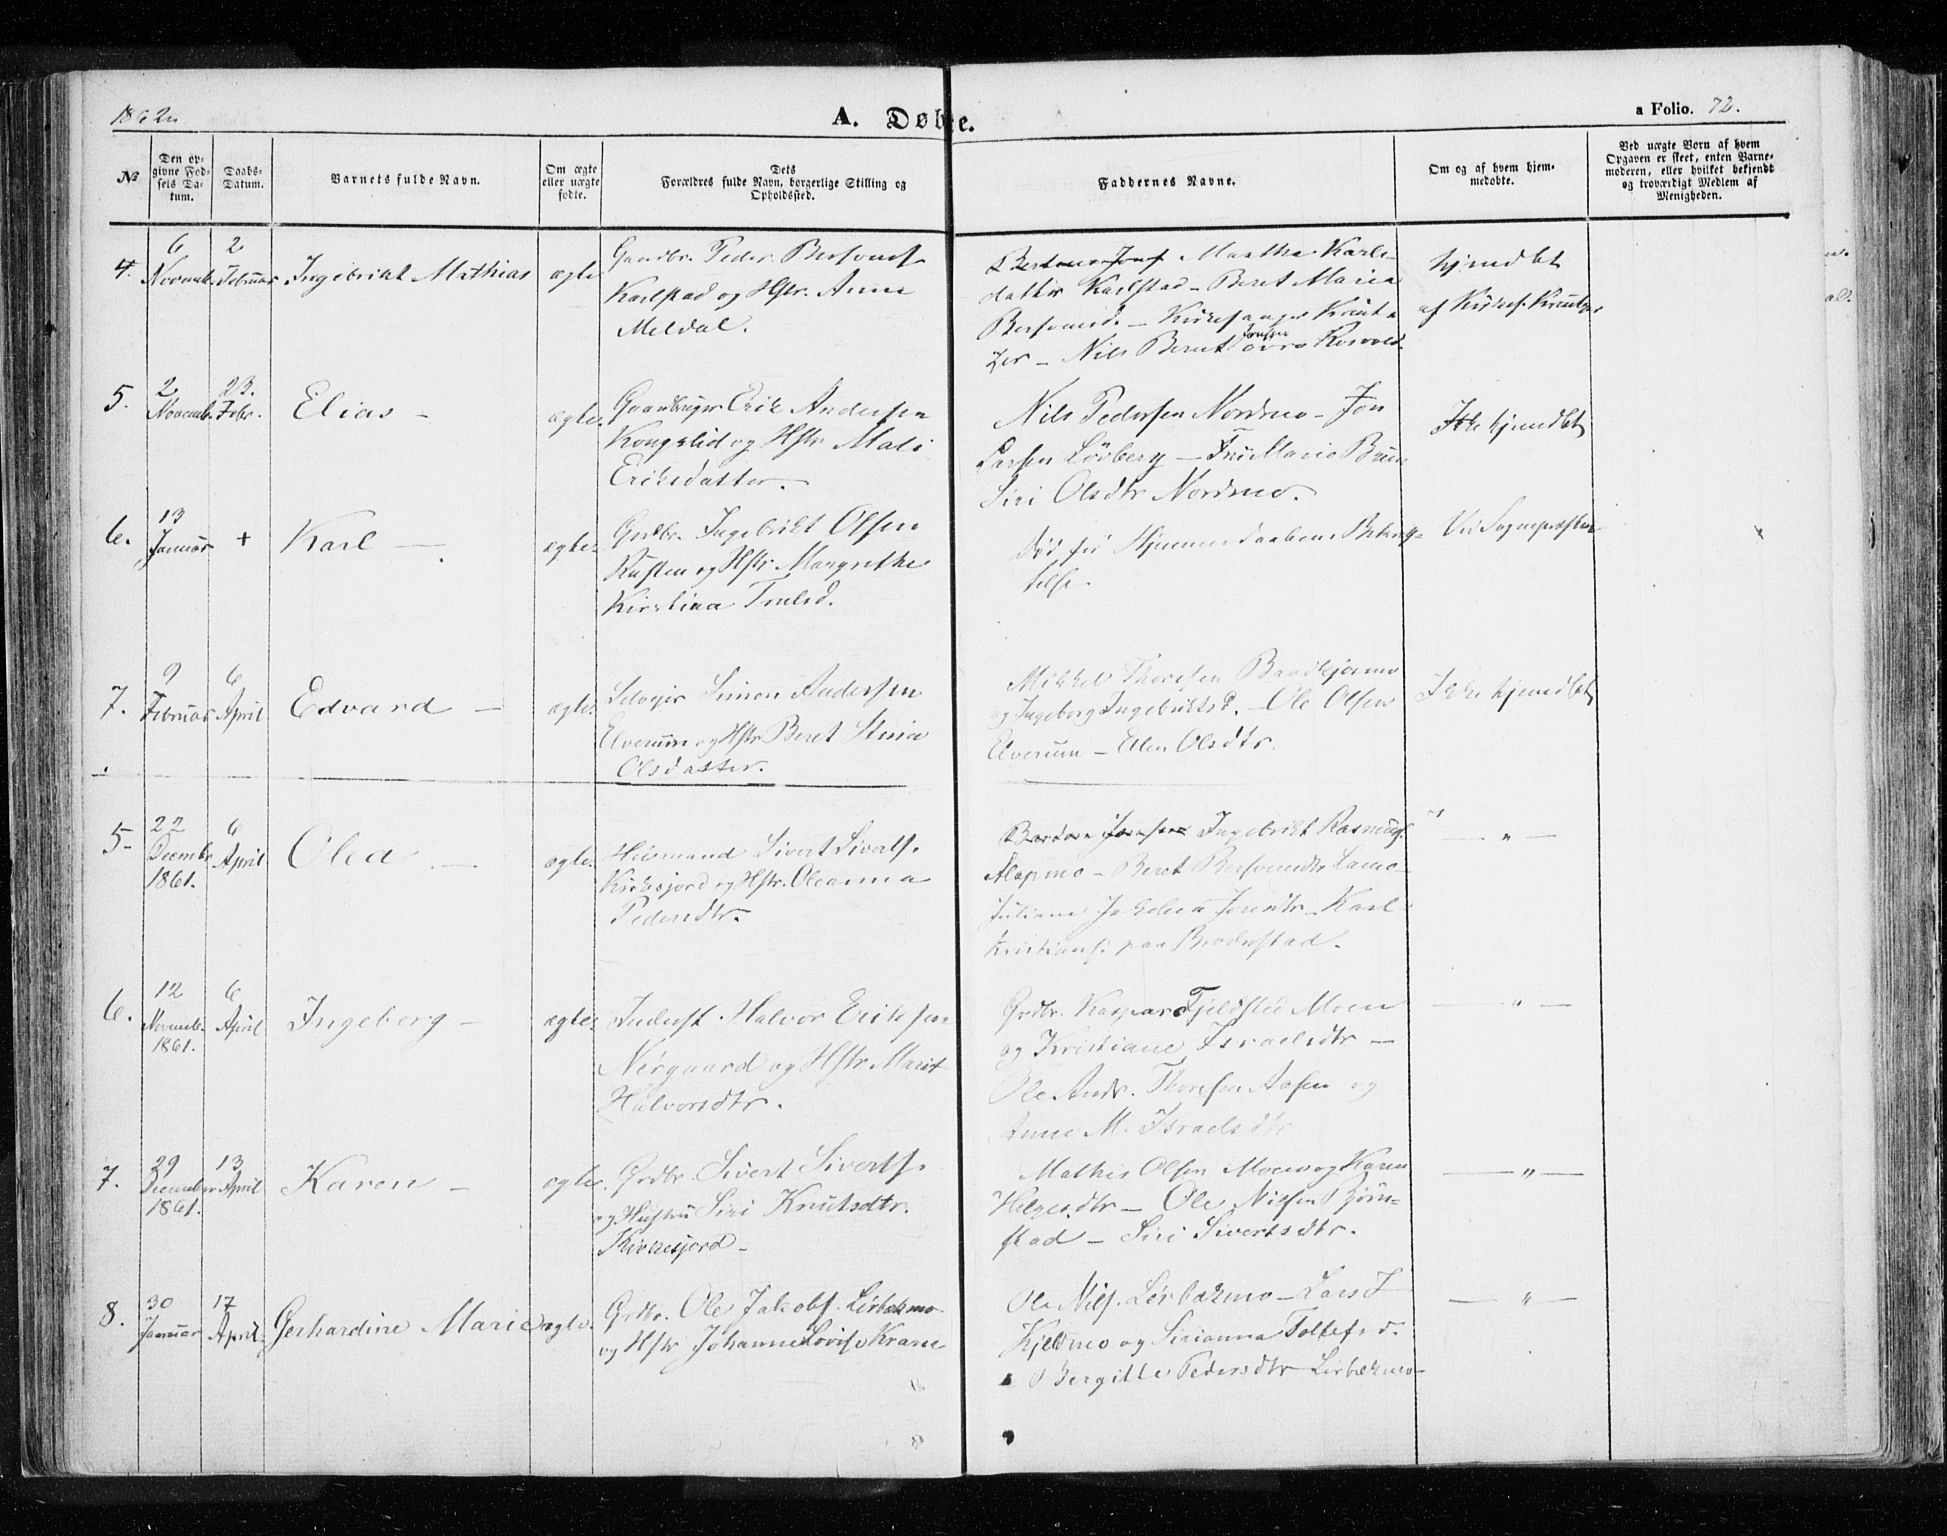 1862.
A. Døbte.
a Folio. 72.
No
Den op-
givne Fød-
sels Da-
tum.
Daabs-
Datum.
Barnets fulde Navn.
Om ægte
eller uægte
fødte.
Dets
Forældres fulde Navn, borgerlige Stilling og
Opholdssted.
Faddernes Navne.
Om og af hvem hjem-
medøbte.
Ved uægte Børn af hvem
Opgaven er skeet, enten Barne-
moderen, eller hvilket bekjendt
og troværdigt Medlem af
Menigheden.
4. 6 Novemb. 2 Februar Ingebrikt Mathias ægte
Gaardbr. Peder
Karlstad og Hstr. Anne
Meldal.
Martha Karls-
datter Karlstad - Beret Maria
Kirkesanger
Nils Beret
hjemdbt
af Kirkes.
5. 2 Novemb. 23. Febr. Elias - ægte.
Gaardbruger Erik Andersen
Kongslid og Hstr Mali
Eriksdatter.
Nils Pedersen Nordmo - Jon
Larsen Løvberg - Fru Marie
Siri Olsdtr Nordmo.
Ikke hjemdbt
6. 13 Januar + Karl - ægte.
Grdbr. Ingebrikt Olsen
Rusten og Hstr Mangrethe
Kirstina
død før Hjemmedaabens Bekræf-
telse.
Ved Sognepræsten
7. 9 Februar 6 April Edvard - ægte.
Selveier Simon Andersen
Elverum og Hstr Beret Stina
Olsdatter.
Mikkel Thoresen
og Ingeborg Ingebriktsd. - Ole Olsen
Elverum - Elen Olsdtr.
Ikke hjemdbt
5. 22 Decembr 1861. 6 April Olea - ægte.
Huusmand Sivert Siverts.
Kirkesjord og Hstr. Oleanna
Pedersdtr.
Ingebrikt Rasmus.
Alapmo - Beret
Juliane Jonsdtr - Karl
Kristians. paa
- " -
6. 12 Novemb. 1861. 6 April Ingeborg - ægte.
Inderst Halvor Eriksen
Nergaard og Hstr. Marit
Halvorsdtr.
Grdbr. Kaspar Fjeldsted Moen
og Kristiane Israelsdtr -
Ole Andr. Thoresen Aasen og
Anne M. Israelsdtr
- " -
7. 29 December 1861. 13 April Karen - ægte.
Grdbr. Sivert Siverts.
og Hustru Siri Knutsdtr.
Kirkesjord -
Mathis Olsen Moen og Karen
Helgesdtr - Ole Nilsen Bjørn-
stad - Siri Sivertsdtr.
- " -
8. 30 Januar 17 April. Gerhardine Marie ægte.
Grdbr. Ole Jakobs. Lerbakmo
og Hstr Johanne Lovise Krane
Ole Nils. Lerbakmo - Lars J
Kjeldmo og Sirianna Tollefsd.
Bergitte Pedersdtr Lerbakmo
- " -